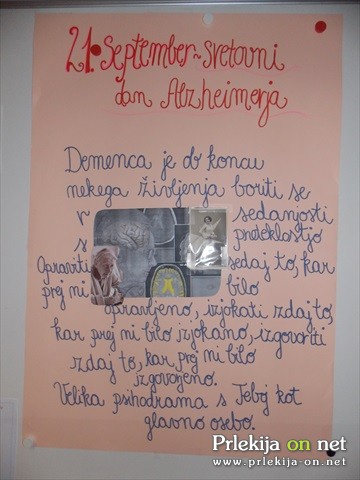 21. September - svetovni
dan Alzheimerja
Demenca je ob koncu
nekega življenja boriti se
v sedanjosti
s preteklostjo
Opraviti sedaj to, kar
prej ni bilo
opravljeno, izjokati zdaj to,
kar prej ni bilo izjokano, izgovoriti
zdaj to, kar prej ni bilo
izgovorjeno.
Velika psihodrama s Teboj kot
glavno osebo.
Prlekija on net
www.prlekija-on.net